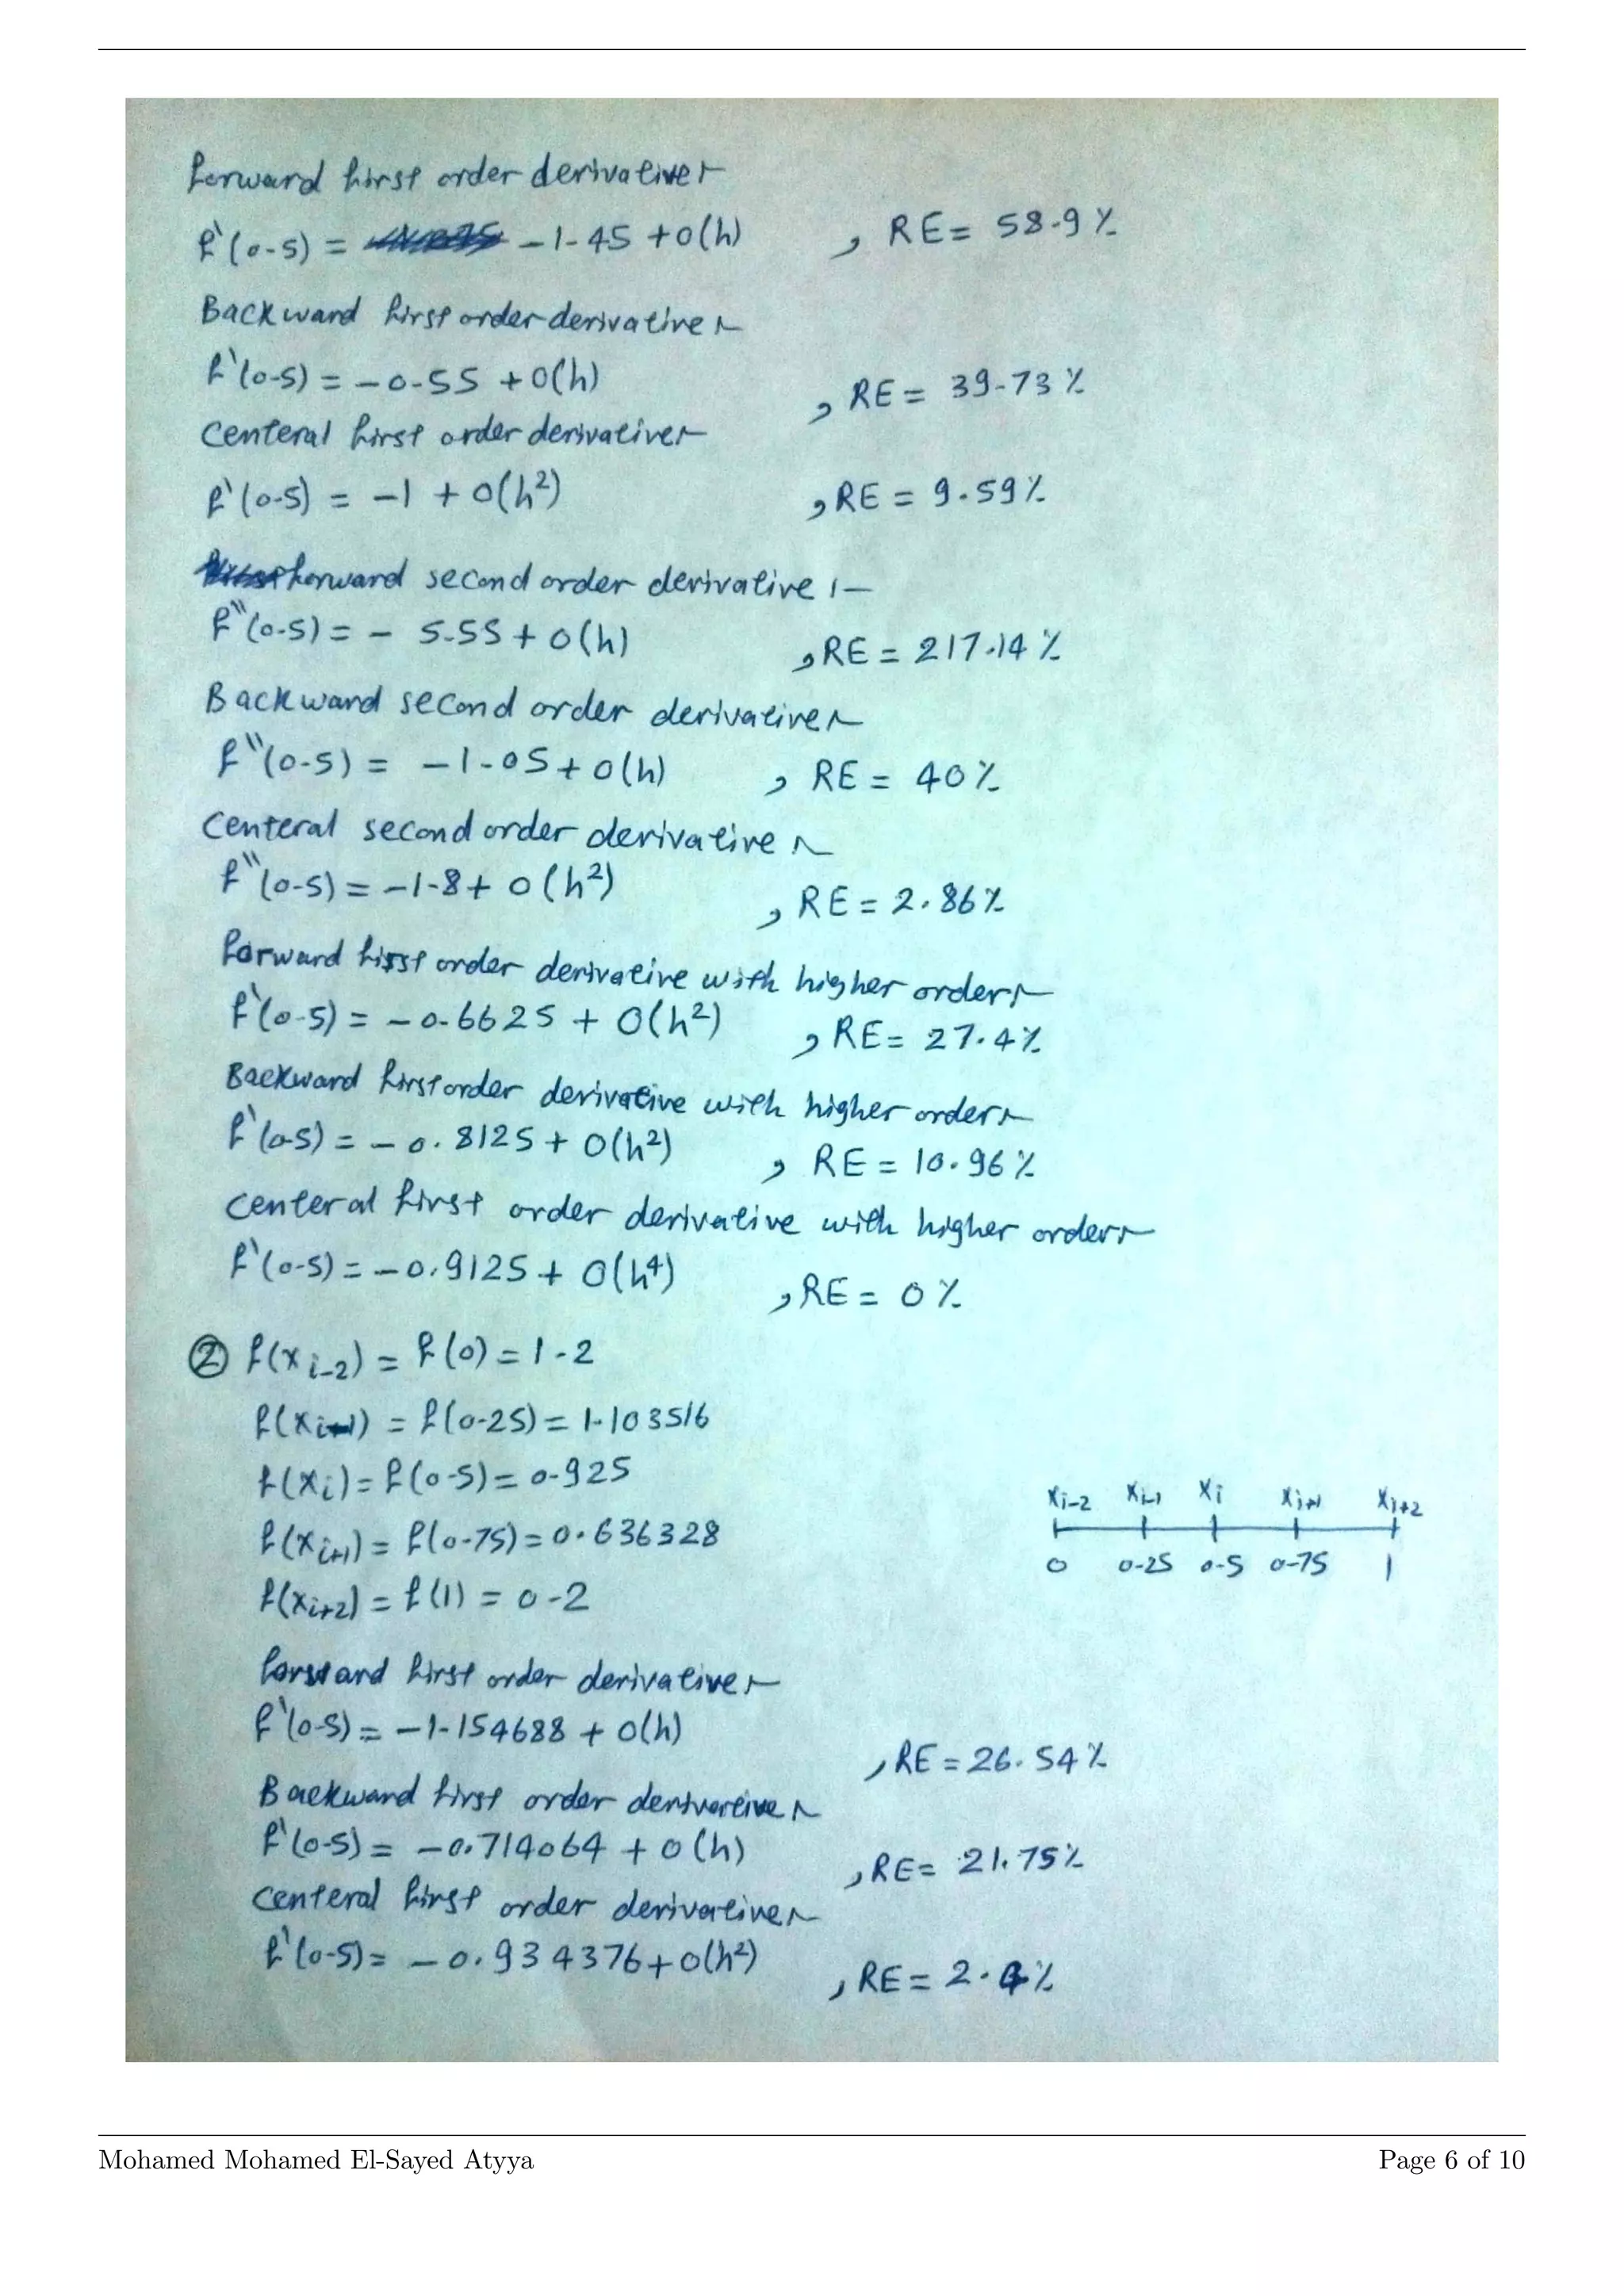 Forward first order derivative:-
f`(0.5) = -1.45 + O(h) , RE = 58.9 %
Backward first order derivative:-
f`(0.5) = -0.55 + O(h) , RE = 39.73 %
Centeral first order derivative:-
f`(0.5) = -1 + O(h²) , RE = 9.59 %
forward second order derivative :-
f``(0.5) = - 5.55 + O(h) , RE = 217.14 %
Backward second order derivative:-
f``(0.5) = -1.05 + O(h) , RE = 40 %
Centeral second order derivative :-
f``(0.5) = -1.8 + O(h²) , RE = 2.86 %
Forward first order derivative with higher order:-
f`(0.5) = -0.6625 + O(h²) , RE = 27.4 %
Backward first order derivative with higher order:-
f`(0.5) = -0.8125 + O(h²) , RE = 10.96 %
Centeral first order derivative with higher order:-
f`(0.5) = -0.9125 + O(h⁴) , RE = 0 %
② f(xi-2) = f(0) = 1.2
f(xi-1) = f(0.25) = 1.103516
f(xi) = f(0.5) = 0.925
f(xi+1) = f(0.75) = 0.636328
f(xi+2) = f(1) = 0.2
xi-2 xi-1 xi xi+1 xi+2
0 0.25 0.5 0.75 1
Forward first order derivative:-
f`(0.5) = -1.154688 + O(h) , RE = 26.54 %
Backward first order derivative:-
f`(0.5) = -0.714064 + O(h) , RE = 21.75 %
Centeral first order derivative:-
f`(0.5) = -0.934376 + O(h²) , RE = 2.4 %
Mohamed Mohamed El-Sayed Atyya Page 6 of 10